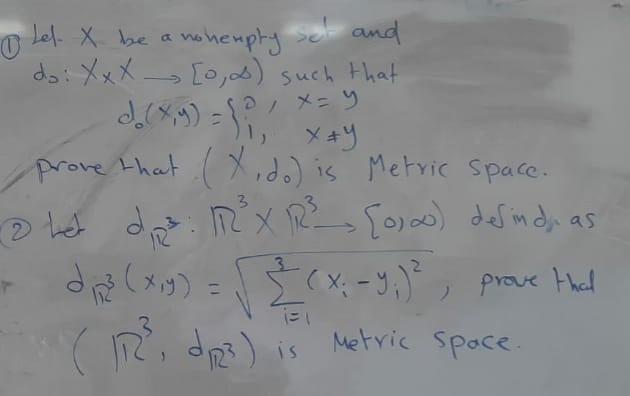 ① Let X be a nonempty set and
d₀: X×X → [0,∞) such that
d₀(x,y) = { 0, x = y
1, x ≠ y
prove that (X, d₀) is Metric space.
② Let d_ℝ³: ℝ³ × ℝ³ → [0,∞) defind as
d_ℝ³(x,y) = √(∑_{i=1}^{3} (xᵢ - yᵢ)²), prove that
(ℝ³, d_ℝ³) is Metric space.